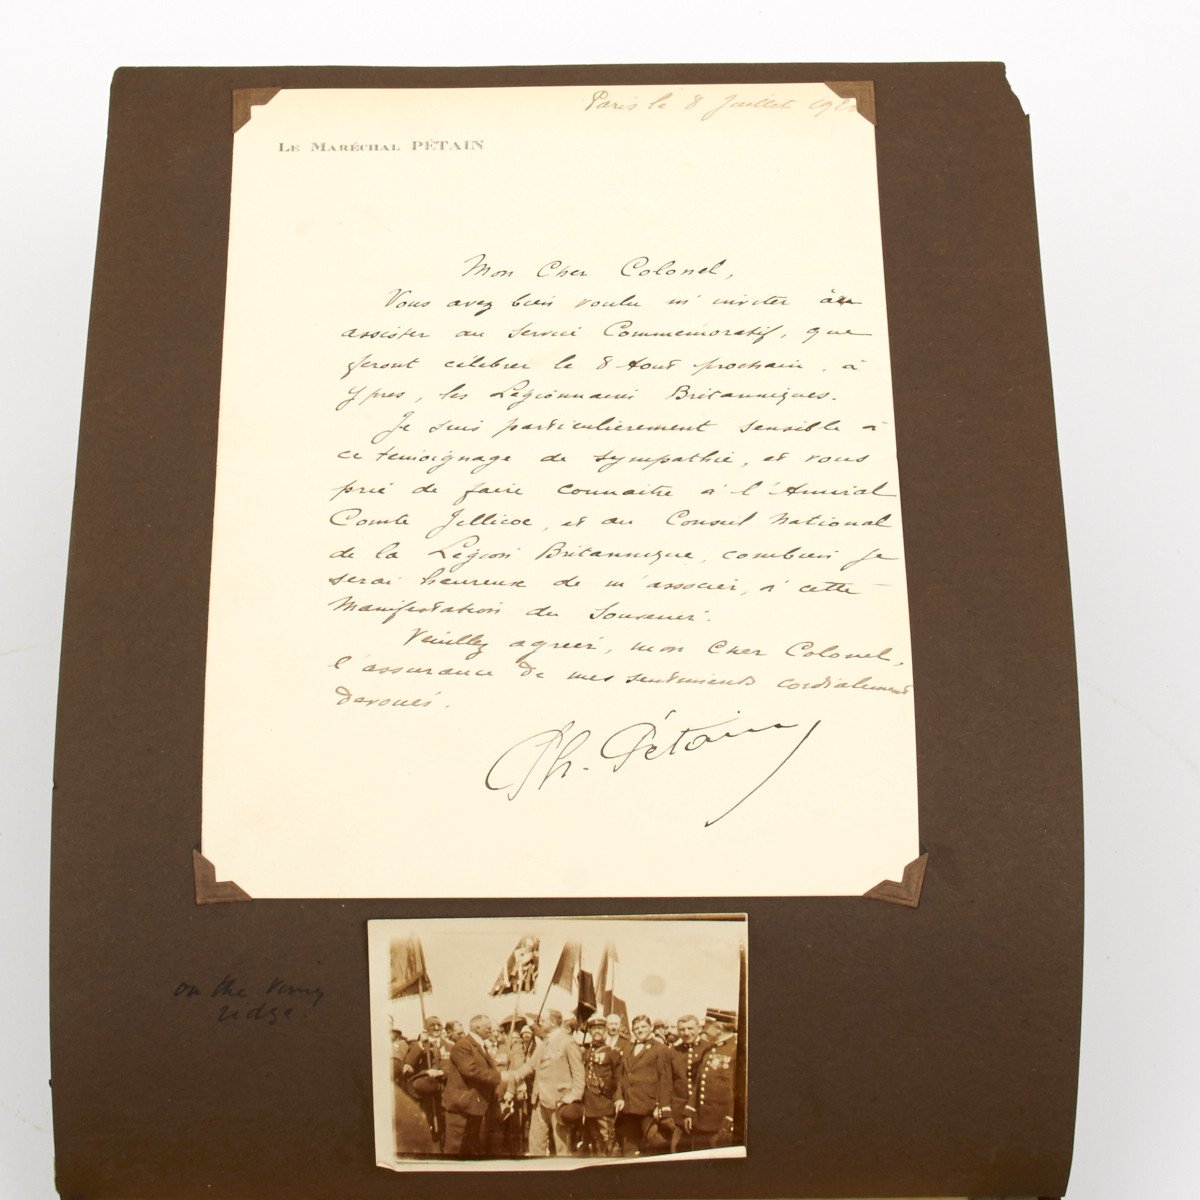 Paris le 8 Juillet
LE MARÉCHAL PÉTAIN
Mon Cher Colonel,
Vous avez bien voulu m'inviter
assister au Service Commémoratif, que
feront célébrer le 8 Août prochain, à
Ypres, les Légionnaires Britanniques.
Je suis particulièrement sensible à
ce témoignage de sympathie, et vous
prie de faire connaitre à l'Amiral
Comte Jellicoe, et au Conseil National
de la Légion Britannique, combien je
serai heureux de m'associer, à cette
Manifestation du Souvenir.
Veuillez agréer, mon Cher Colonel,
l'assurance de mes sentiments cordialement
dévoués.
Ph. Pétain
on the Vimy
ridge.